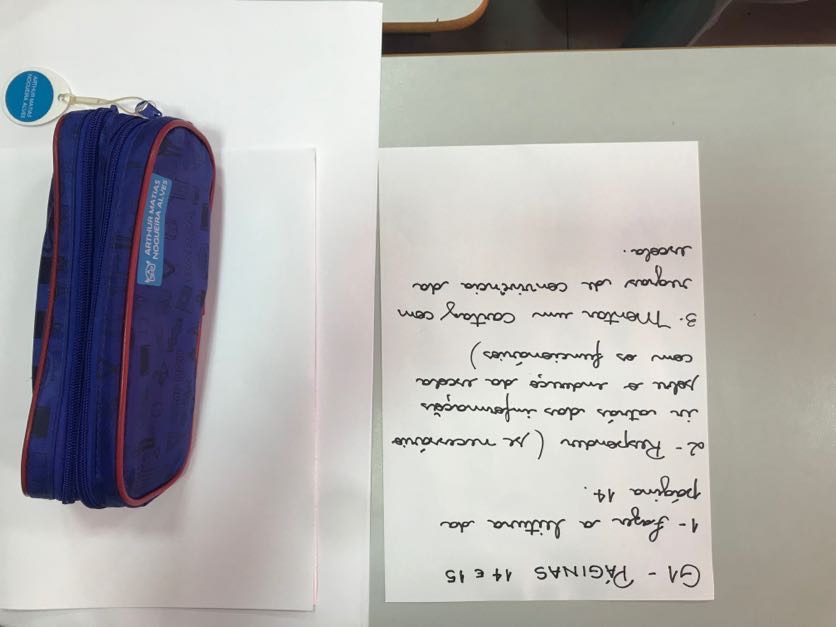 G1 - PÁGINAS 14 E 15
1- Fazer a leitura da
página 14.
2- Responder (se necessário
ir atrás das informações
sobre o endereço da escola
com os funcionários)
3- Montar um cartaz com
regras de convivência da
escola.
ARTHUR MATIAS
NOGUEIRA ALVES
ARTHUR MATIAS
NOGUEIRA ALVES